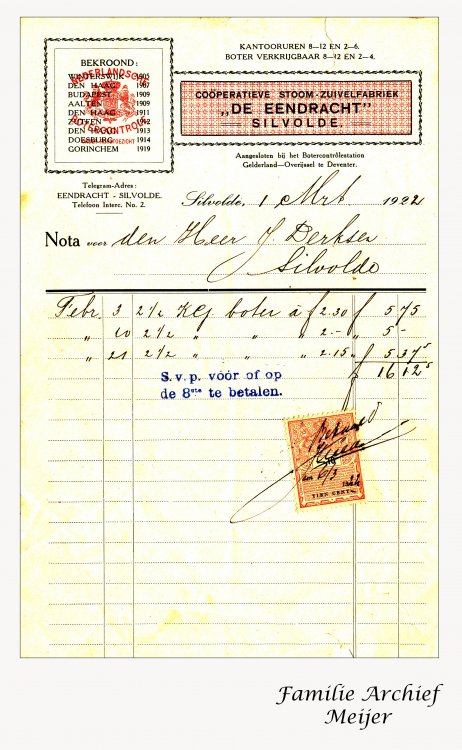 KANTOORUREN 8—12 EN 2—6.
BOTER VERKRIJGBAAR 8—12 EN 2—4.
BEKROOND:
WINTERSWIJK 1905
DEN HAAG 1907
BUDAPEST 1909
AALTEN 1909
DEN HAAG 1911
ZUTFEN 1912
DEN BOON 1913
DOESBURG 1914
GORINCHEM 1919
NEDERLANDSCHE
BOTERCONTROLE
COÖPERATIEVE STOOM-ZUIVELFABRIEK
„DE EENDRACHT"
SILVOLDE.
Aangesloten bij het Botercontrôlestation
Gelderland—Overijssel te Deventer.
Telegram-Adres:
EENDRACHT - SILVOLDE.
Telefoon Interc. No. 2.
Silvolde, 1 Mrt 1922
Nota voor den Heer J. Derksen
Silvolde
Febr. 3 2½ KG boter à ƒ 2.30 ƒ 5 75
„ 10 2½ „ „ „ 2.- „ 5 -
„ 21 2½ „ „ „ 2.15 „ 5 37⁵
ƒ 16 12⁵
S.v.p. vóór of op
de 8ste te betalen.
Betaald
den 6/3 1922
TIEN CENTS.
Familie Archief
Meijer